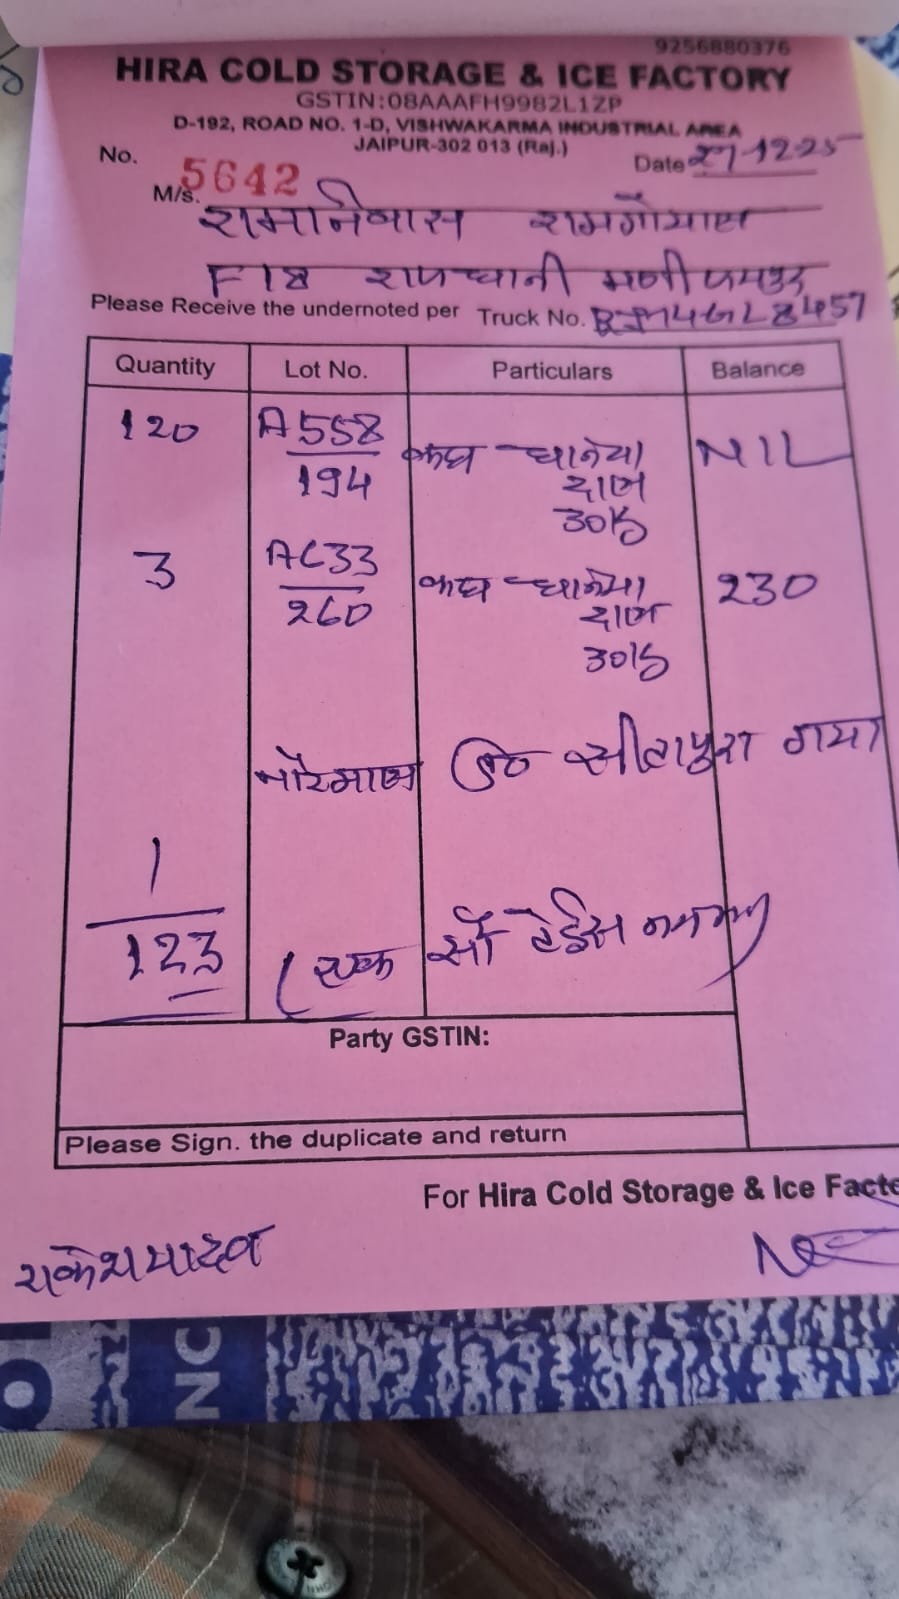 9256880376
HIRA COLD STORAGE & ICE FACTORY
GSTIN:08AAAFH9982L1ZP
D-192, ROAD NO. 1-D, VISHWAKARMA INDUSTRIAL AREA
JAIPUR-302 013 (Raj.)
No. 5642
Date 27-12-25
M/s. रामनिवास रामगोपाल
F18 राजधानी मण्डी जयपुर
Please Receive the undernoted per Truck No. RJ14GL8457
Quantity Lot No. Particulars Balance
120 A558 NIL
194 धनिया
दाल
30K
3 AC33 धनिया 230
260 दाल
30K
सीतापुरा गया
1
123 (एक सौ तेईस
Party GSTIN:
Please Sign. the duplicate and return
For Hira Cold Storage & Ice Facto
राकेश यादव